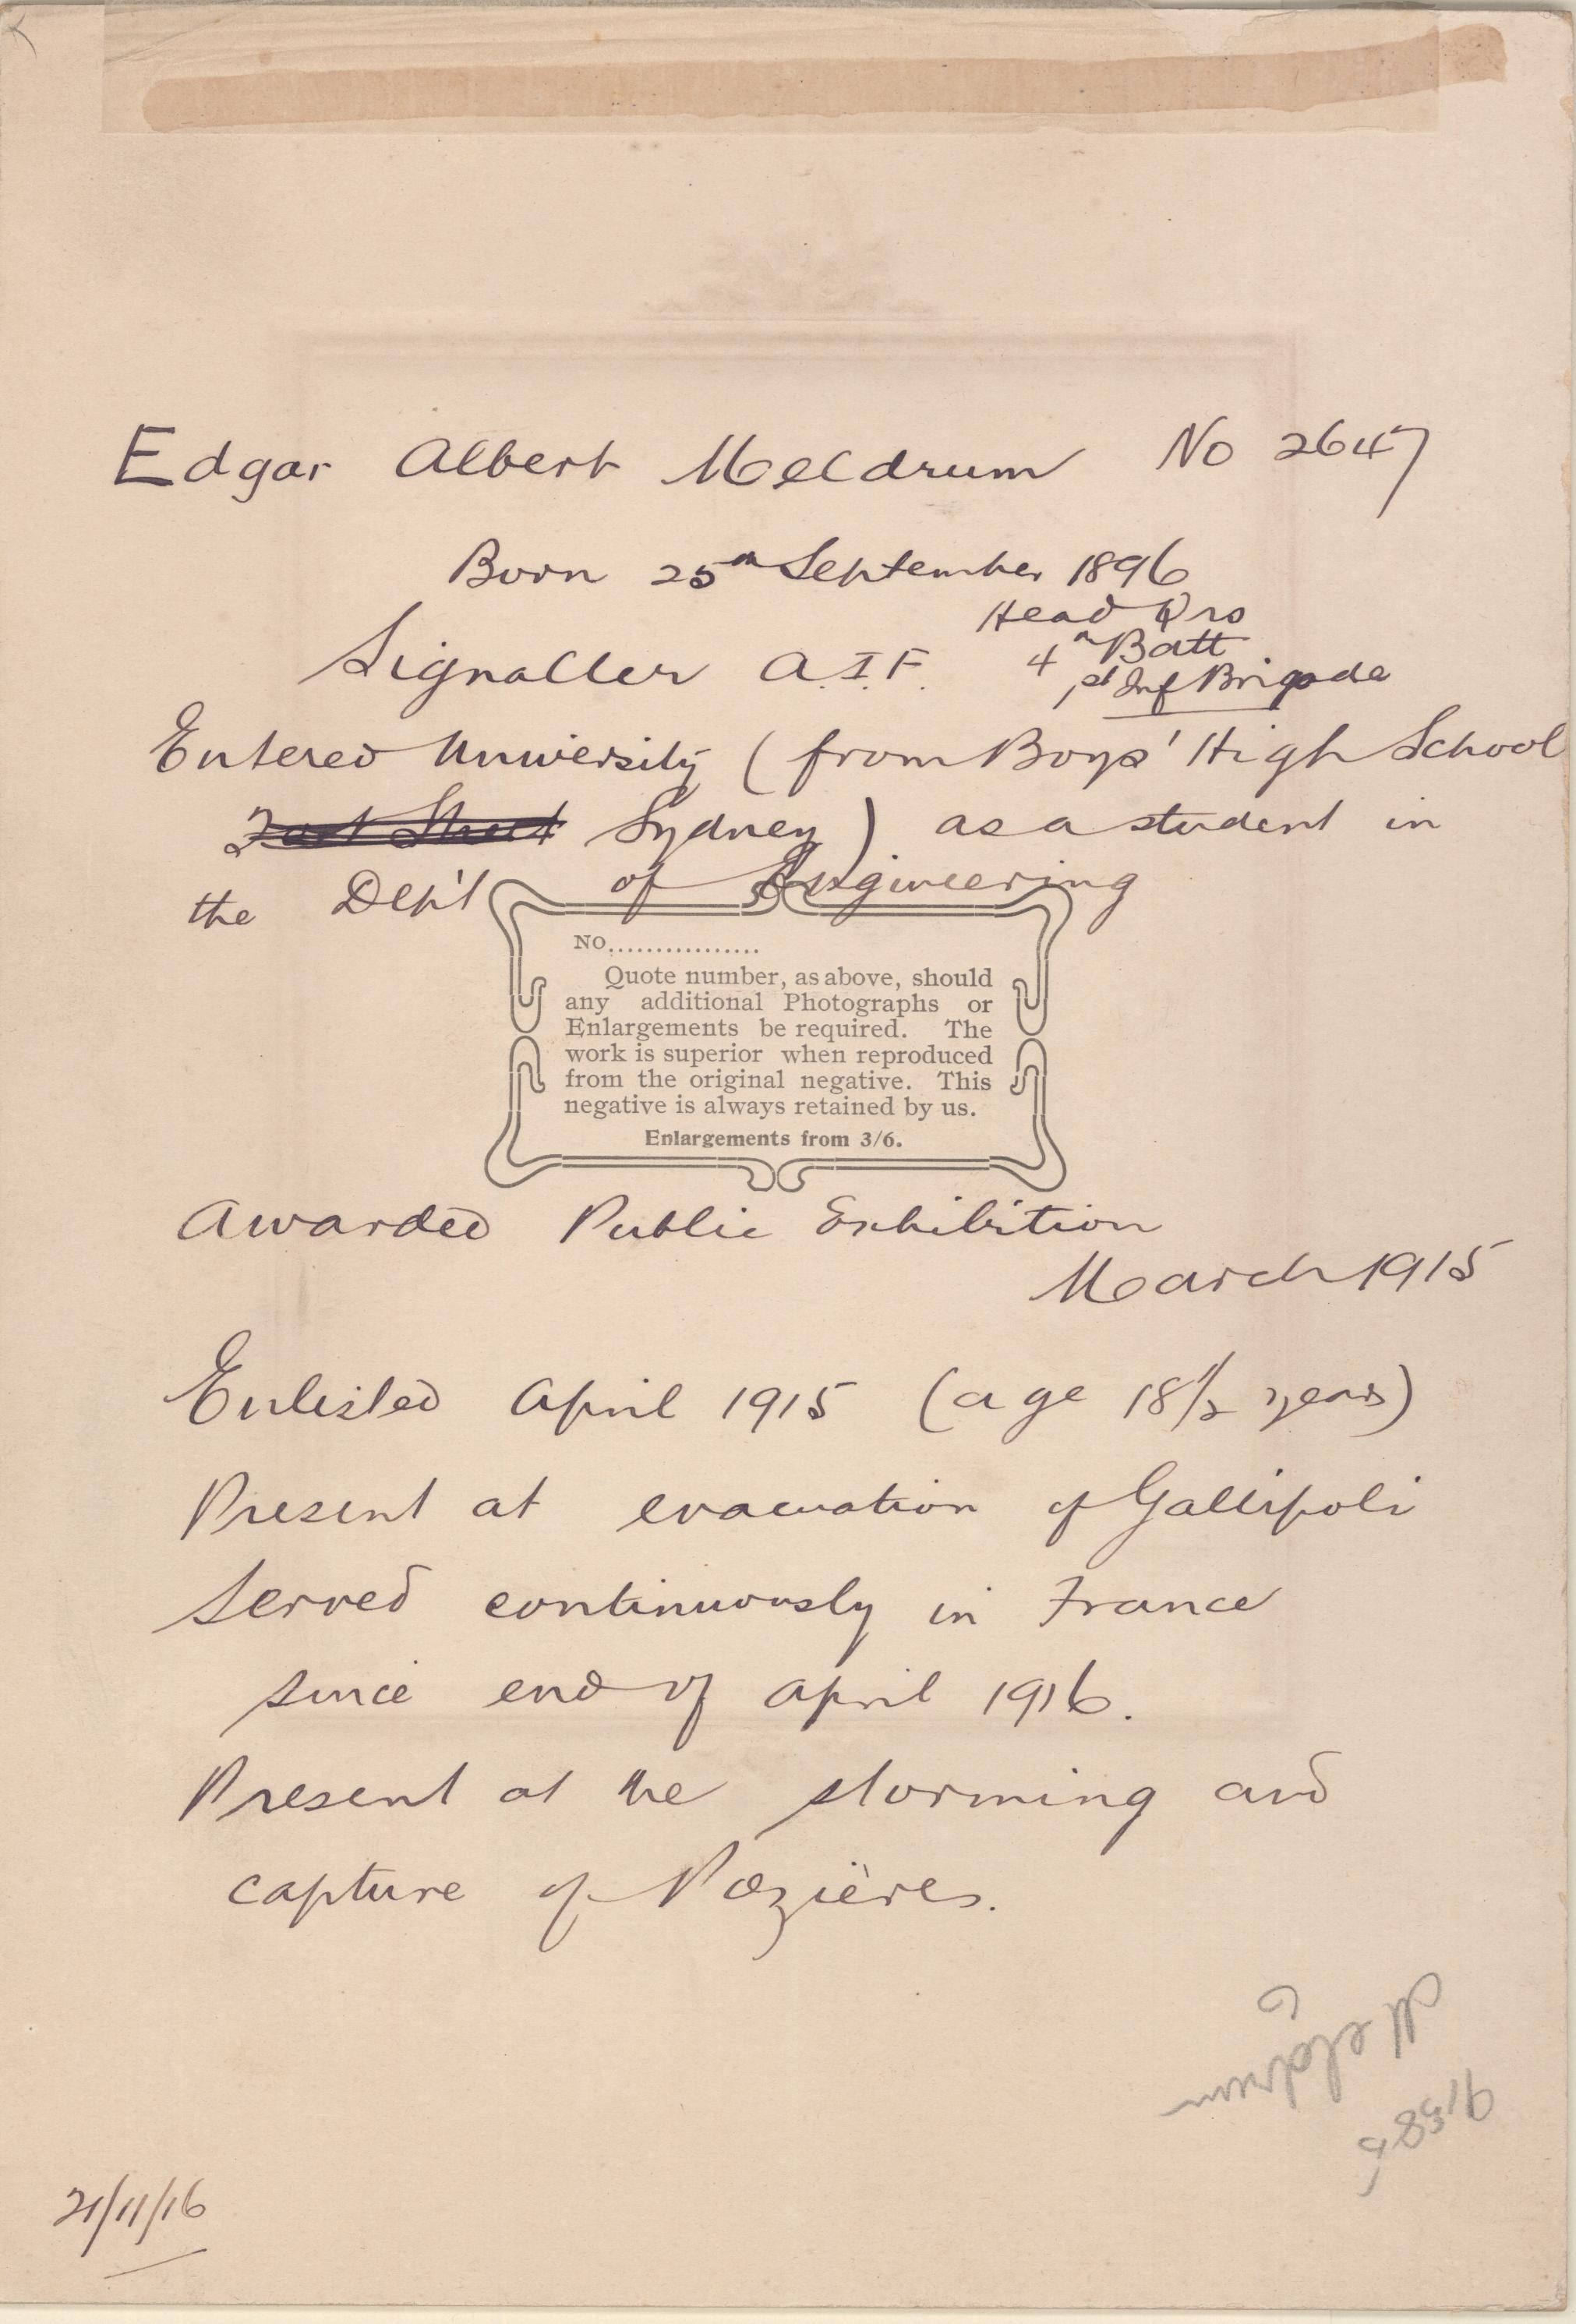 Edgar Albert Meldrum No 2647
Born 25th September 1896
Head Qrs
Signaller A.I.F. 4th Batt
1st Inf Brigade
Entered University (from Boys' High School
Fort Street Sydney) as a student in
the Dep't of Engineering
NO................
Quote number, as above, should
any additional Photographs or
Enlargements be required. The
work is superior when reproduced
from the original negative. This
negative is always retained by us.
Enlargements from 3/6.
Awarded Public Exhibition
March 1915
Enlisted April 1915 (age 18 1/2 years)
Present at evacuation of Gallipoli
Served continuously in France
since end of April 1916.
Present at the storming and
capture of Pozières.
Meldrum
21/11/16